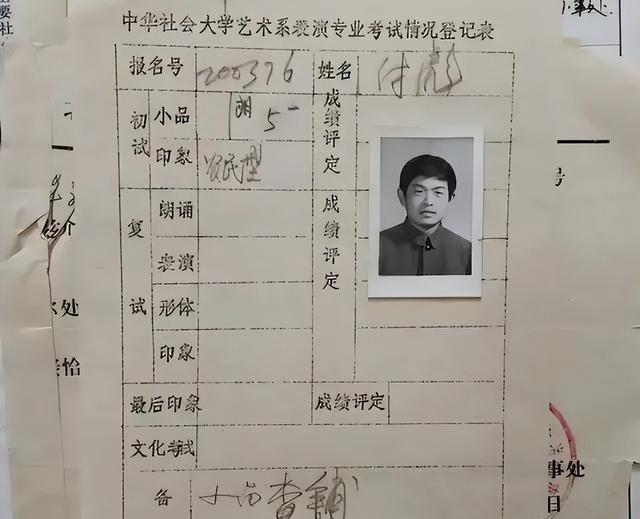 中华社会大学艺术系表演专业考试情况登记表
报名号 200376 姓名 付彪
初试 小品 5 成绩评定
印象 农民型
复试 朗诵 成绩评定
表演
形体
印象
最后印象 成绩评定
文化考试
备
要社
号
处
恰
事处
目